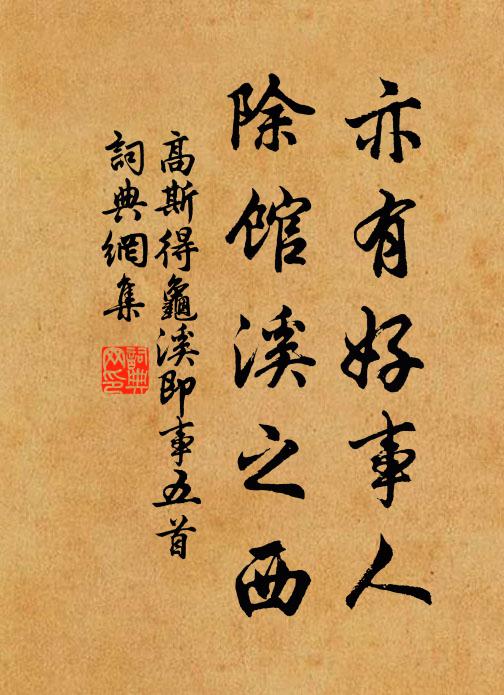 亦有好事人
除馆溪之西
高斯得龜溪即事五首
詞典網集
詞典网印